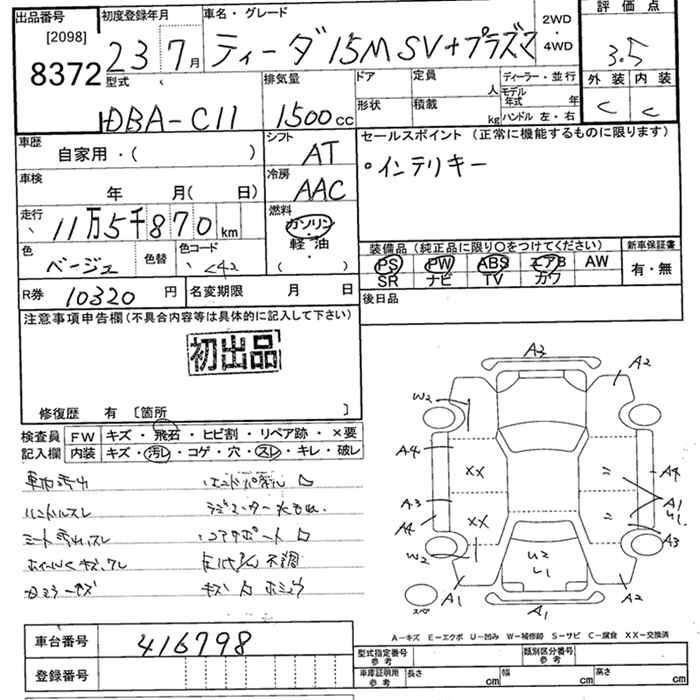 出品番号 初度登録年月 車名・グレード 2WD・4WD 評価点
[2098]
8372 23 7月 ティーダ 15M SV+プラズマ 3.5
型式 排気量 ドア 定員 人 ディーラー・並行 外装 内装
DBA-C11 1500cc 形状 積載 kg モデル年式 年 ハンドル 左・右 C C
車歴 シフト セールスポイント (正常に機能するものに限ります)
自家用・( ) AT ・インテリキー
車検 冷房
年 月( 日) AAC
走行 燃料
11万5千870km ガソリン・軽油
( ・ )
色 色替 色コード 装備品 (純正品に限り○をつけてください) 新車保証書
ベージュ C42 PS PW ABS エアB AW 有・無
SR ナビ TV カワ
R券 10320円 名変期限 月 日 後日品
注意事項申告欄(不具合内容等は具体的に記入して下さい)
初出品
修復歴 有 [箇所 ]
検査員 FW キズ・飛石・ヒビ割・リペア跡・×要
記入欄 内装 キズ・汚レ・コゲ・穴・スレ・キレ・破レ
ハンドルスレ
A3
A2
W2
A4
XX
A4
A3
A1
U1
A4
XX
A3
W2
U2
L1
A1
A2
スペア
A1
A-キズ E-エクボ U-凹み W-補修跡 S-サビ C-腐食 XX-交換済
車台番号 416798
型式指定番号 参考 類別区分番号 参考
登録番号
車庫証明用 参考 長さ cm 幅 cm 高さ cm